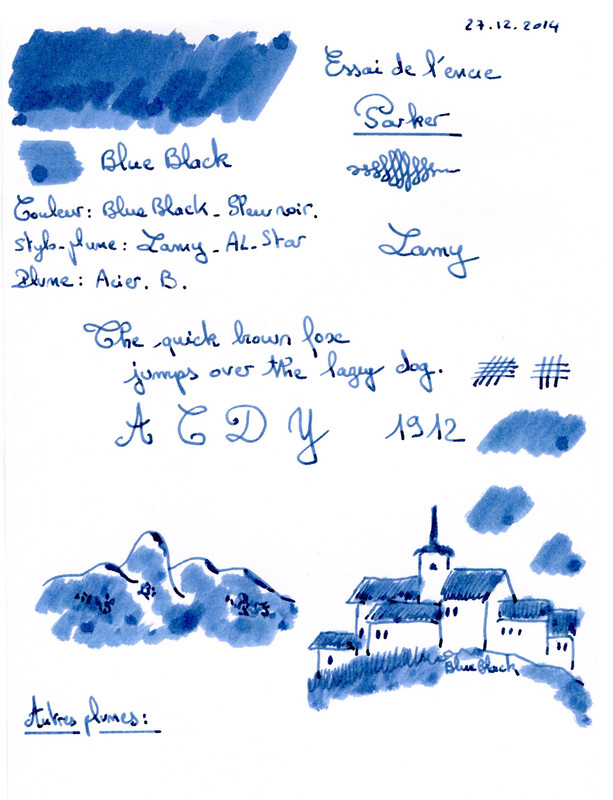 27.12.2014
Essai de l'encre
Parker
Blue Black
Couleur: Blue Black - Bleu noir.
Stylo-plume: Lamy - AL-Star
Plume: Acier. B.
Lamy
The quick brown fox
jumps over the lazy dog.
A C D Y 1912
Blue Black
Autres plumes: